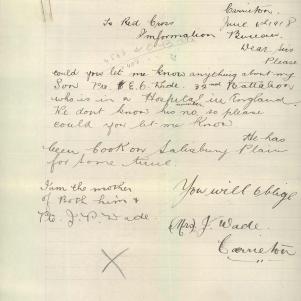 Carrieton
To Red Cross June 6th 1918
Information Bureau
Dear Sir
Please
could you let me know anything about my
Son Pte E.C. Wade. 32nd Battalion
who is in a Hospital in England
number
We dont know his no, so please
could you let me know
He has
been Cook on Salisbury Plain
for some time.
I am the mother
of both him &
Pte J. P. Wade.
You will oblige
Mrs J. Wade.
Carrieton